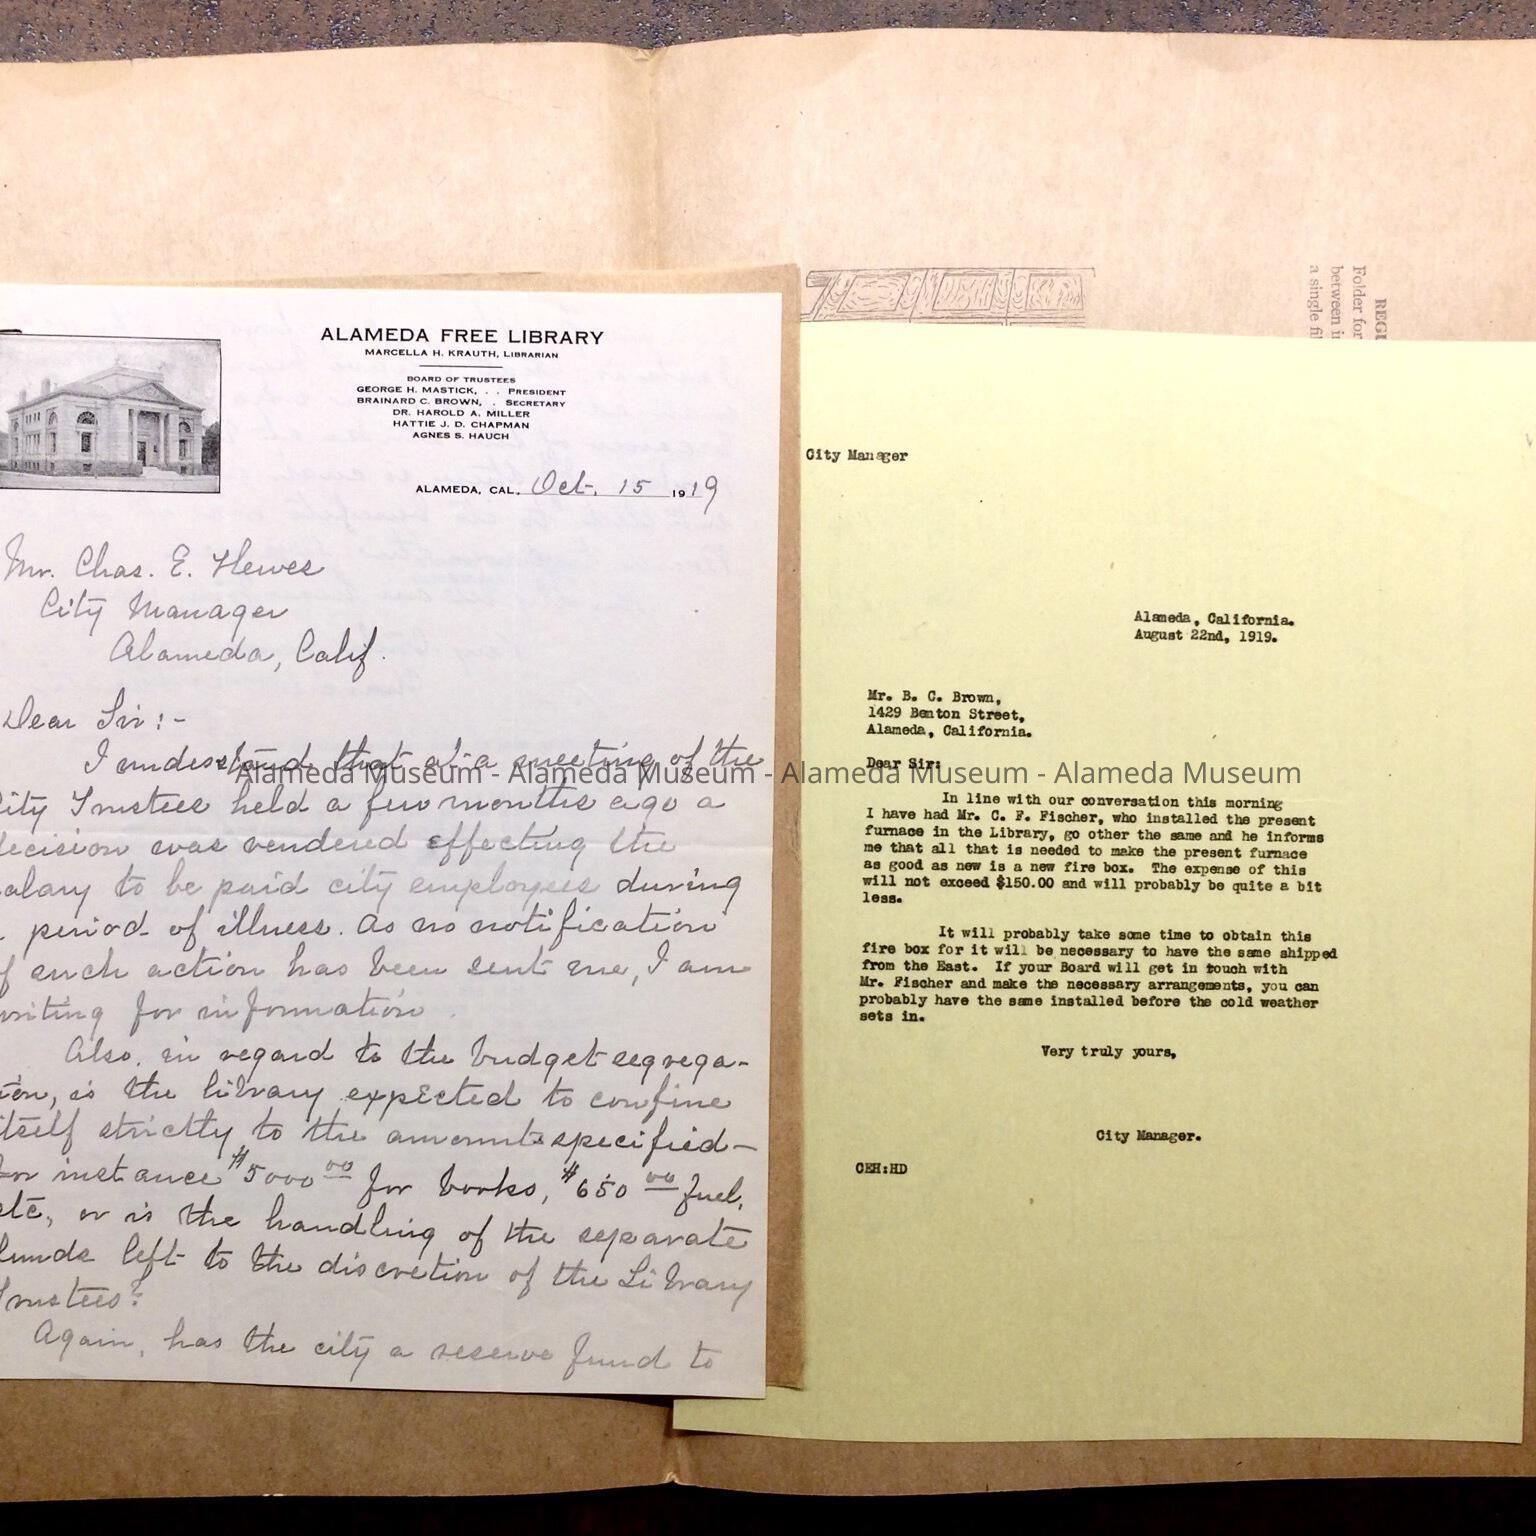 ALAMEDA FREE LIBRARY
MARCELLA H. KRAUTH, LIBRARIAN
BOARD OF TRUSTEES
GEORGE H. MASTICK, . . PRESIDENT
BRAINARD C. BROWN, . SECRETARY
DR. HAROLD A. MILLER
HATTIE J. D. CHAPMAN
AGNES S. HAUCH
ALAMEDA, CAL. Oct. 15 1919
Mr. Chas. E. Hewes
City Manager
Alameda, Calif.
Dear Sir:-
I understand that at a meeting of the
City Trustees held a few months ago a
decision was rendered effecting the
salary to be paid city employees during
period of illness. As no notification
of such action has been sent me, I am
writing for information.
Also, in regard to the budget segrega-
tion, is the library expected to confine
itself strictly to the amounts specified—
for instance $5000.00 for books, $650.00 fuel,
etc, or is the handling of the separate
funds left to the discretion of the Library
Trustees?
Again, has the city a reserve fund to
REGU
Folder for
between i
a single fi
City Manager
Alameda, California.
August 22nd, 1919.
Mr. B. C. Brown,
1429 Benton Street,
Alameda, California.
Dear Sir:
In line with our conversation this morning
I have had Mr. C. F. Fischer, who installed the present
furnace in the Library, go other the same and he informs
me that all that is needed to make the present furnace
as good as new is a new fire box. The expense of this
will not exceed $150.00 and will probably be quite a bit
less.
It will probably take some time to obtain this
fire box for it will be necessary to have the same shipped
from the East. If your Board will get in touch with
Mr. Fischer and make the necessary arrangements, you can
probably have the same installed before the cold weather
sets in.
Very truly yours,
City Manager.
CEH:HD
Alameda Museum - Alameda Museum - Alameda Museum - Alameda Museum